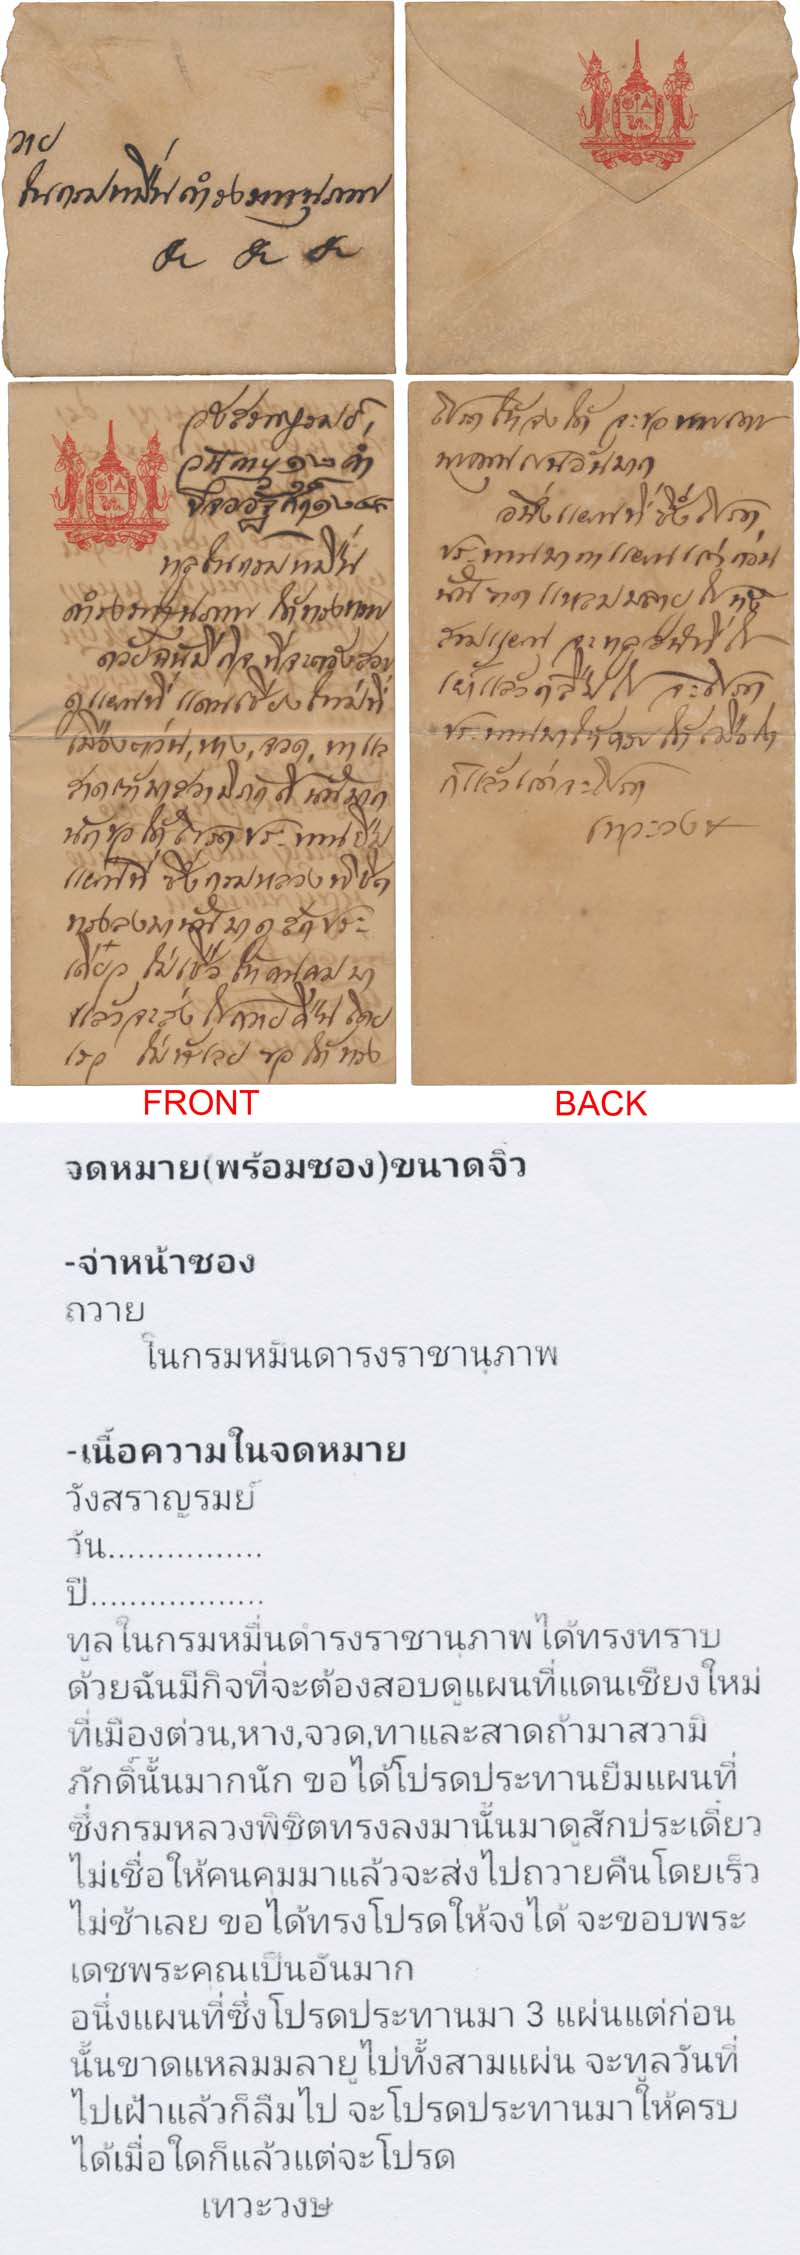 ถวาย
ในกรมหมื่นดำรงราชานุภาพ
วังสราญรมย์
ทูลในกรมหมื่น
ดำรงราชานุภาพ ได้ทรงทราบ
ด้วยฉันมีกิจที่จะต้องสอบ
ดูแผนที่แดนเชียงใหม่ที่
เมืองต่วน, หาง, จวด, ทาแล
สาดถ้ามาสวามิภักดิ์นั้นมาก
นักขอได้โปรดประทานยืม
แผนที่ ซึ่งกรมหลวงพิชิต
ทรงลงมานั้นมาดูสักประ
เดี๋ยว ไม่เชื่อให้คนคุมมา
แล้วจะส่งไปถวายคืนโดย
เรว ไม่ช้าเลย ขอได้ทรง
โปรดให้จงได้ จะขอบพระเดช
พระคุณเปนอันมาก
อนึ่งแผนที่ซึ่งโปรด
ประทานมา ๓ แผ่นแต่ก่อน
นั้นขาดแหลมมลายูไปทั้ง
สามแผ่น จะทูลวันที่ไป
เฝ้าแล้วก็ลืมไป จะโปรด
ประทานมาให้ครบได้เมื่อใด
ก็แล้วแต่จะโปรด
เทวะวงษ
FRONT
BACK
จดหมาย(พร้อมซอง)ขนาดจิ๋ว
-จ่าหน้าซอง
ถวาย
ในกรมหมื่นดำรงราชานุภาพ
-เนื้อความในจดหมาย
วังสราญรมย์
วัน................
ปี..................
ทูลในกรมหมื่นดำรงราชานุภาพได้ทรงทราบ
ด้วยฉันมีกิจที่จะต้องสอบดูแผนที่แดนเชียงใหม่
ที่เมืองต่วน,หาง,จวด,ทาและสาดถ้ามาสวามิ
ภักดิ์นั้นมากนัก ขอได้โปรดประทานยืมแผนที่
ซึ่งกรมหลวงพิชิตทรงลงมานั้นมาดูสักประเดี๋ยว
ไม่เชื่อให้คนคุมมาแล้วจะส่งไปถวายคืนโดยเร็ว
ไม่ช้าเลย ขอได้ทรงโปรดให้จงได้ จะขอบพระ
เดชพระคุณเป็นอันมาก
อนึ่งแผนที่ซึ่งโปรดประทานมา 3 แผ่นแต่ก่อน
นั้นขาดแหลมมลายูไปทั้งสามแผ่น จะทูลวันที่
ไปเฝ้าแล้วก็ลืมไป จะโปรดประทานมาให้ครบ
ได้เมื่อใดก็แล้วแต่จะโปรด
เทวะวงษ